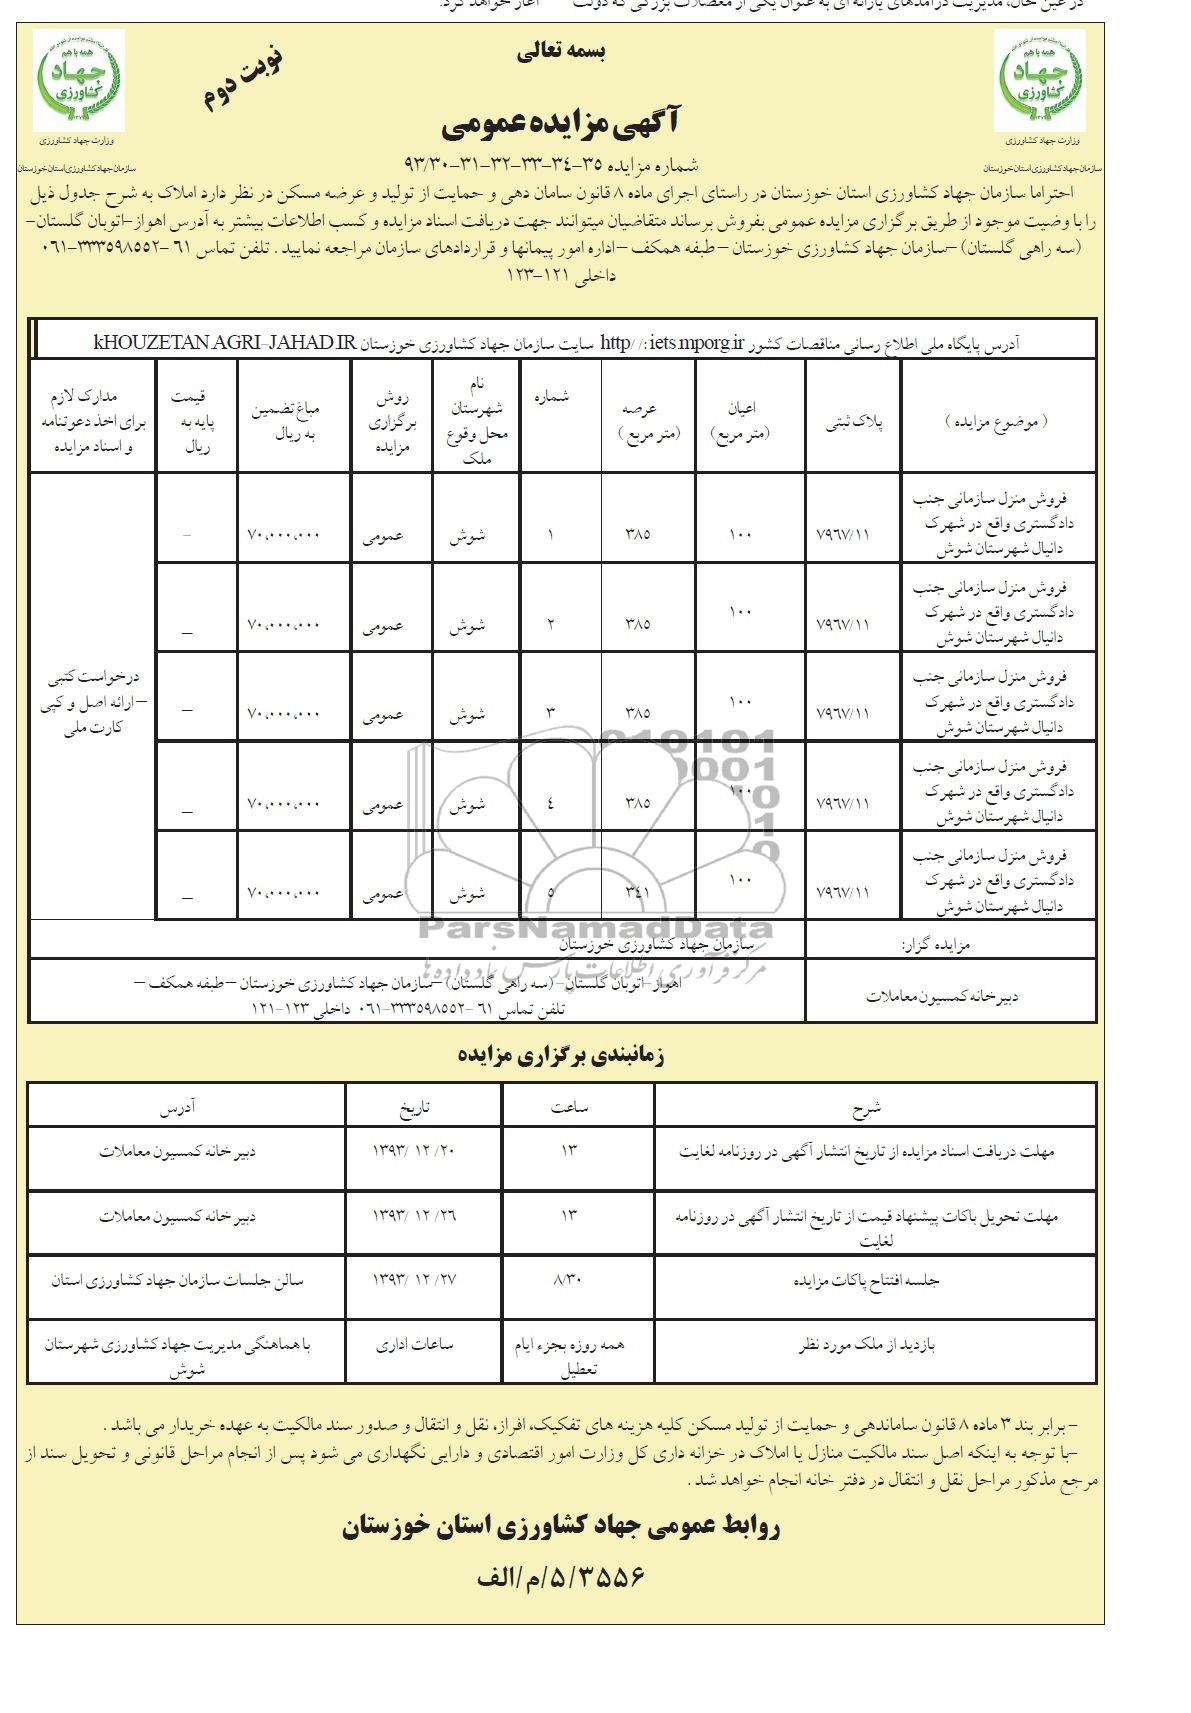 در عین حال، مدیریت درآمدهای یارانه ای به عنوان یکی از معضلات بزرگی که دولت آغاز خواهد کرد.
بسمه تعالی
نوبت دوم
همه با هم
جهاد
کشاورزی
وزارت جهاد کشاورزی
سازمان جهاد کشاورزی استان خوزستان
همه با هم
جهاد
کشاورزی
وزارت جهاد کشاورزی
سازمان جهاد کشاورزی استان خوزستان
آگهی مزایده عمومی
شماره مزایده ۳۵-۳۴-۳۳-۳۲-۳۱-۹۳/۳۰
احتراما سازمان جهاد کشاورزی استان خوزستان در راستای اجرای ماده ۸ قانون سامان دهی و حمایت از تولید و عرضه مسکن در نظر دارد املاک به شرح جدول ذیل
را با وضیت موجود از طریق برگزاری مزایده عمومی بفروش برساند متقاضیان میتوانند جهت دریافت اسناد مزایده و کسب اطلاعات بیشتر به آدرس اهواز-اتوبان گلستان-
(سه راهی گلستان) -سازمان جهاد کشاورزی خوزستان - طبفه همکف - اداره امور پیمانها و قراردادهای سازمان مراجعه نمایید . تلفن تماس ۶۱ -۳۳۳۵۹۸۵۵۲-۰۶۱
داخلی ۱۲۱-۱۲۳
آدرس پایگاه ملی اطلاع رسانی مناقصات کشور http/ /: iets.mporg.ir سایت سازمان جهاد کشاورزی خوزستان kHOUZETAN.AGRI-JAHAD.IR
( موضوع مزایده ) پلاک ثبتی اعیان (متر مربع) عرصه (متر مربع ) شماره نام شهرستان محل وقوع ملک روش برگزاری مزایده مباغ تضمین به ریال قیمت پایه به ریال مدارک لازم برای اخذ دعوتنامه و اسناد مزایده
فروش منزل سازمانی جنب دادگستری واقع در شهرک دانیال شهرستان شوش ۷۹۶۷/۱۱ ۱۰۰ ۳۸۵ ۱ شوش عمومی ۷۰،۰۰۰،۰۰۰ -
فروش منزل سازمانی جنب دادگستری واقع در شهرک دانیال شهرستان شوش ۷۹۶۷/۱۱ ۱۰۰ ۳۸۵ ۲ شوش عمومی ۷۰،۰۰۰،۰۰۰ _
فروش منزل سازمانی جنب دادگستری واقع در شهرک دانیال شهرستان شوش ۷۹۶۷/۱۱ ۱۰۰ ۳۸۵ ۳ شوش عمومی ۷۰،۰۰۰،۰۰۰ _
فروش منزل سازمانی جنب دادگستری واقع در شهرک دانیال شهرستان شوش ۷۹۶۷/۱۱ ۱۰۰ ۳۸۵ ٤ شوش عمومی ۷۰،۰۰۰،۰۰۰ _
فروش منزل سازمانی جنب دادگستری واقع در شهرک دانیال شهرستان شوش ۷۹۶۷/۱۱ ۱۰۰ ۳٤۱ ۵ شوش عمومی ۷۰،۰۰۰،۰۰۰ _
درخواست کتبی
– ارائه اصل و کپی
کارت ملی
ParsNamadData
مرکز فرآوری اطلاعات پارس نماد داده ها
مزایده گزار: سازمان جهاد کشاورزی خوزستان
دبیرخانه کمسیون معاملات اهواز-اتوبان گلستان-(سه راهی گلستان) -سازمان جهاد کشاورزی خوزستان - طبفه همکف -
تلفن تماس ۶۱ -۳۳۳۵۹۸۵۵۲-۰۶۱ داخلی ۱۲۳-۱۲۱
زمانبندی برگزاری مزایده
شرح ساعت تاریخ آدرس
مهلت دریافت اسناد مزایده از تاریخ انتشار آگهی در روزنامه لغایت ۱۳ ۱۳۹۳/ ۱۲ /۲۰ دبیرخانه کمسیون معاملات
مهلت تحویل باکات پیشنهاد قیمت از تاریخ انتشار آگهی در روزنامه لغایت ۱۳ ۱۳۹۳/ ۱۲ /۲۶ دبیرخانه کمسیون معاملات
جلسه افتتاح پاکات مزایده ۸/۳۰ ۱۳۹۳/ ۱۲ /۲۷ سالن جلسات سازمان جهاد کشاورزی استان
بازدید از ملک مورد نظر همه روزه بجزء ایام تعطیل ساعات اداری با هماهنگی مدیریت جهاد کشاورزی شهرستان شوش
- برابر بند ۳ ماده ۸ قانون ساماندهی و حمایت از تولید مسکن کلیه هزینه های تفکیک، افراز، نقل و انتقال و صدور سند مالکیت به عهده خریدار می باشد .
-با توجه به اینکه اصل سند مالکیت منازل یا املاک در خزانه داری کل وزارت امور اقتصادی و دارایی نگهداری می شود پس از انجام مراحل قانونی و تحویل سند از
مرجع مذکور مراحل نقل و انتقال در دفتر خانه انجام خواهد شد .
روابط عمومی جهاد کشاورزی استان خوزستان
۵/۳۵۵۶/م/الف